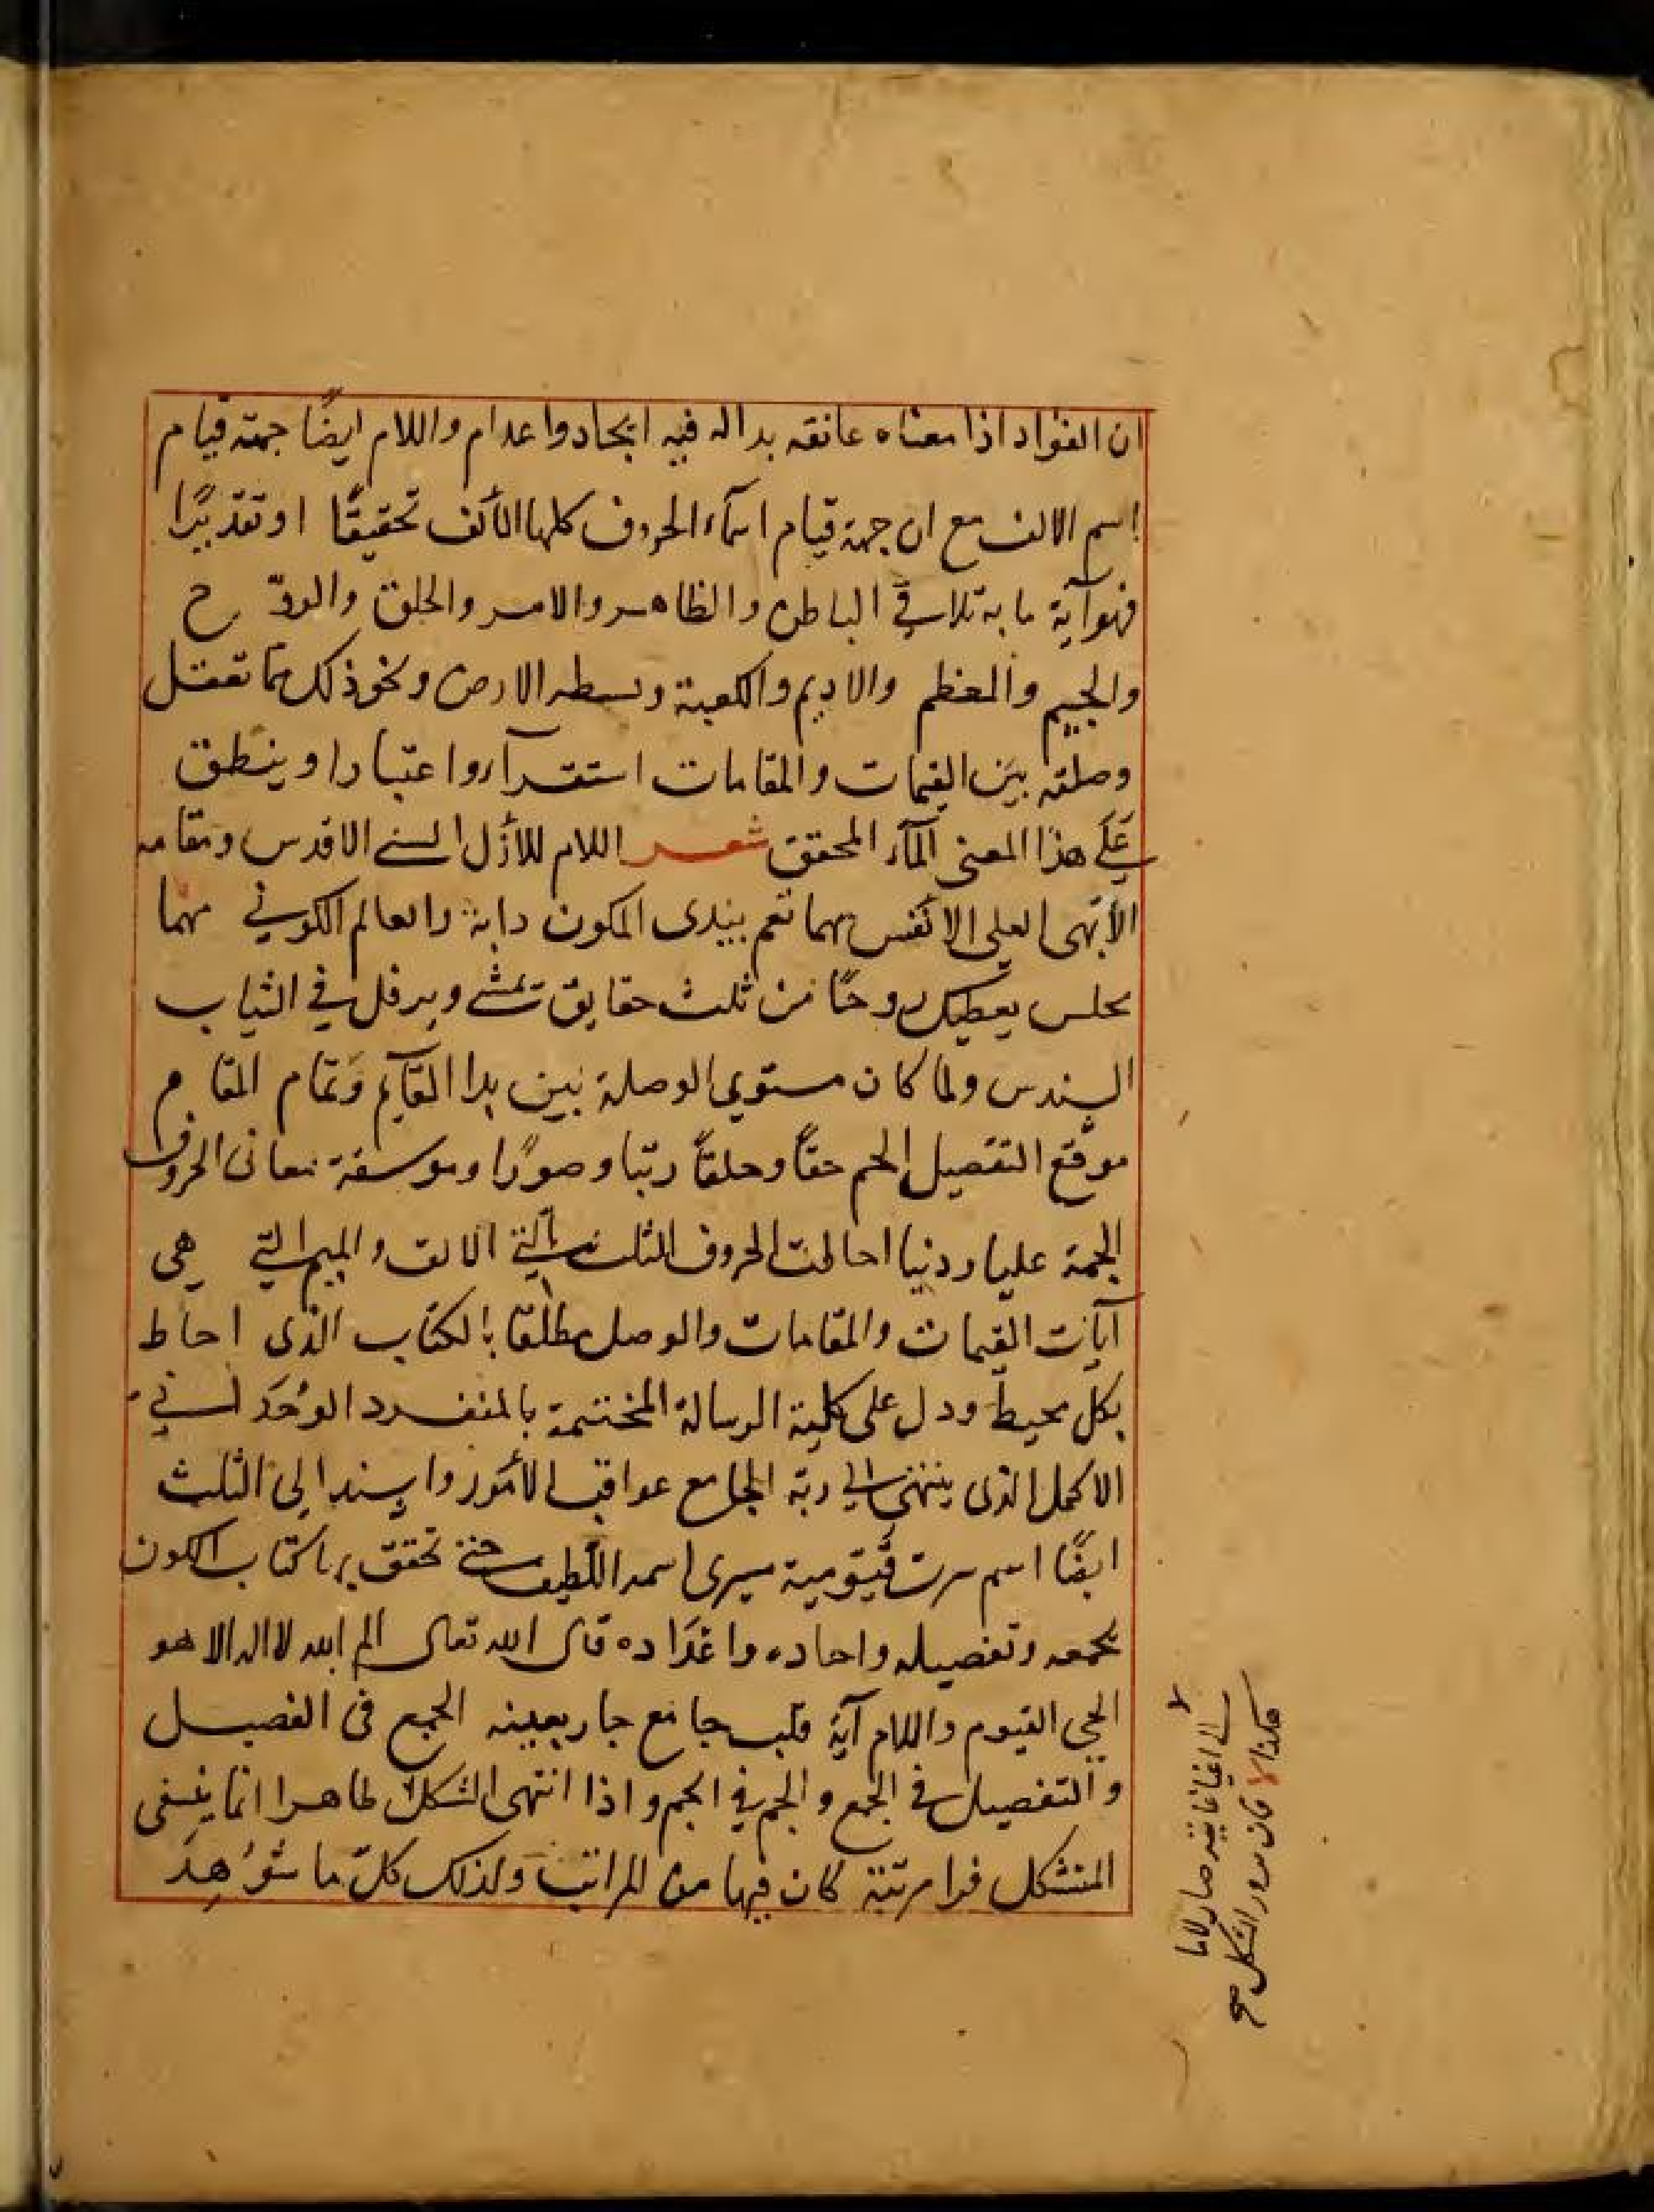 ان الفواد اذا معناه عانقه بدا له فيه ايجاد واعدام واللام ايضًا جهته قيام
اسم الالف مع ان جهة قيام اسمآء الحروف كلها الألف تحقيقًا او تقديرًا
فهو آية ما به تلاقي الباطن والظاهر والامر والخلق والروح
والجيم والعظم والاديم والكعبة وبسطه الارض ونحو ذلك مما تعقل
وصلته بين القيمات والمقامات استقرآء واعتبارا وينطق
على هذا المعنى المآء المحقق شعر اللام للأزل السني الاقدس ومقامه
الأبهى العلي الانفس مهما تقم يبدى المكون ذاته والعالم الكوني مهما
يجلس يعطيك روحًا من ثلث حقايق تمشي ويرفل في الثياب
السندس ولما كان مستوي الوصلة بين بدا القآيم وتمام المقام
موقع التفصيل الجم حقًا وخلقًا رتبا وصورًا وموسقة معاني الحروف
الجمة عليا ودنيا احالت الحروف الثلث التي الالف والميم التي هي
آيات القيمات والمقامات والوصل مطلقا بالكتاب الذى احاط
بكل محيط ودل على كلية الرسالة المختتمة بالمنفرد الوُحَد
الاكمل الذى ينتهي الي ربة الجامع عواقب الأمور واسند الى الثلث
ايضًا اسم سرت قيّومية سرى اسمه اللطيف حتى تحقق بها كتاب الكون
بجمعه وتفصيله واحاده واعداده قال الله تعالى الم الله لا اله الا هو
الحي القيوم واللام آية قلب جامع جار بعينه الجمع فى الفصيل
والتفصيل في الجمع والجم في الجم واذا انتهى الشكل ظاهرا انما ينبغى
المتشكل فرا مرتبة كان فيها من المراتب ولذلك كلّ ما شوُهِدَ
الى غاية صار لاما
هكذا لا فان مدور الشكل صح